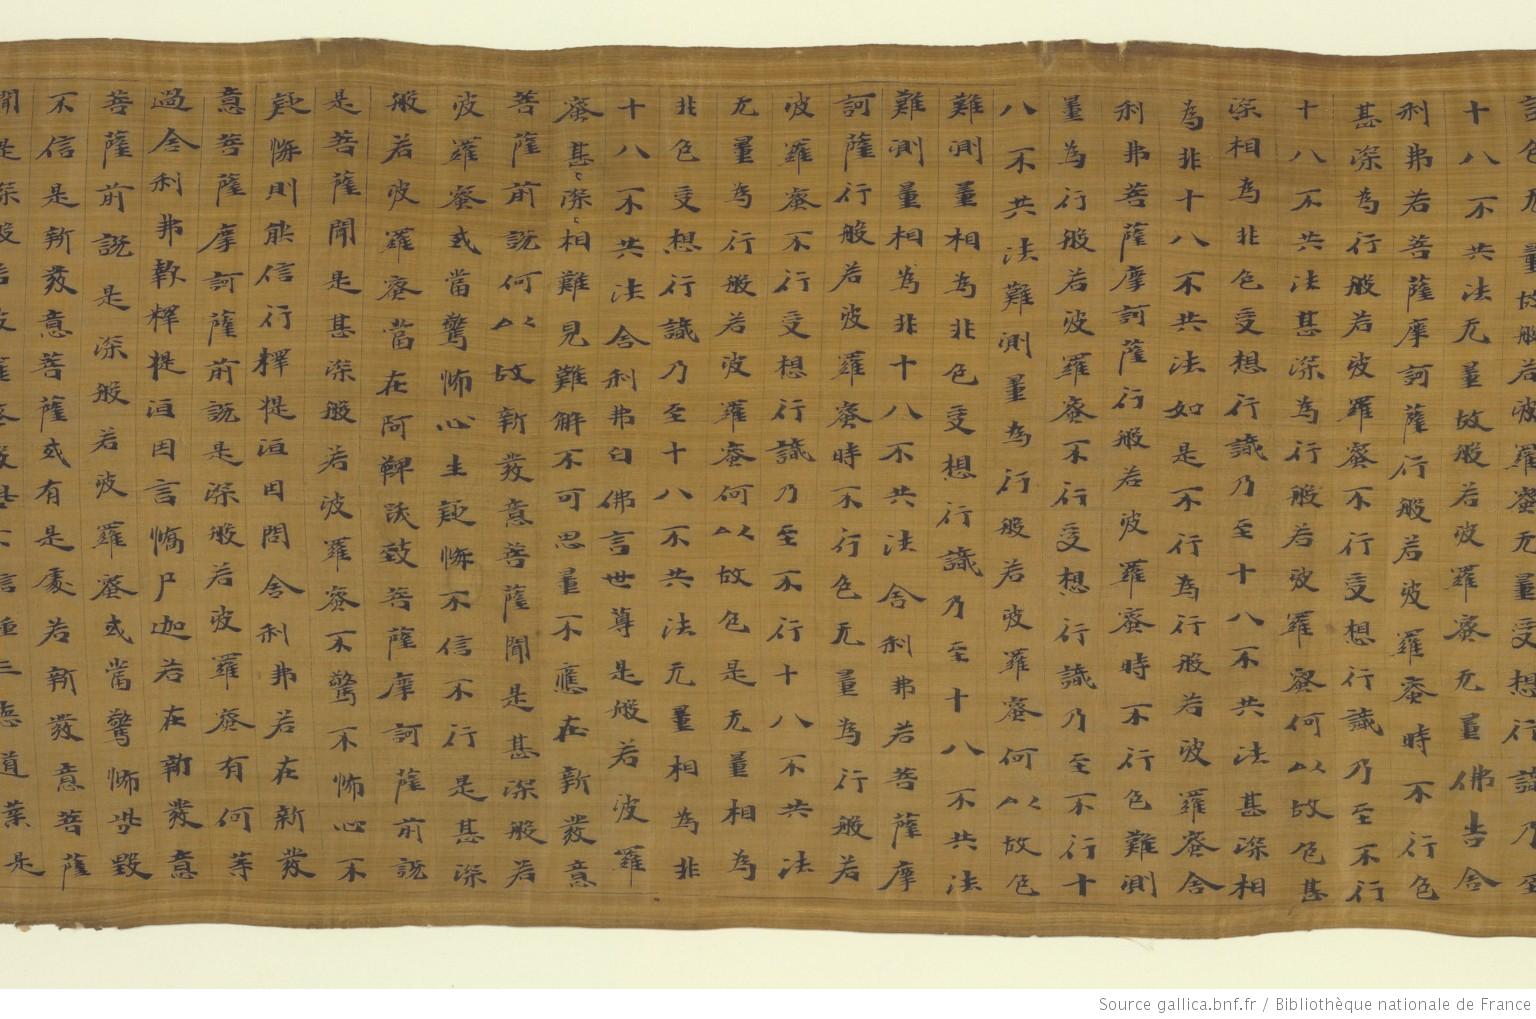 色无量故般若波羅蜜无量受想行識乃至
十八不共法无量故般若波羅蜜无量佛告舍
利弗若菩薩摩訶薩行般若波羅蜜時不行色
甚深為行般若波羅蜜不行受想行識乃至不行
十八不共法甚深為行般若波羅蜜何以故色甚
深相為非色受想行識乃至十八不共法甚深相
為非十八不共法如是不行為行般若波羅蜜舍
利弗菩薩摩訶薩行般若波羅蜜時不行色難測
量為行般若波羅蜜不行受想行識乃至不行十
八不共法難測量為行般若波羅蜜何以故色
難測量相為非色受想行識乃至十八不共法
難測量相為非十八不共法舍利弗若菩薩摩
訶薩行般若波羅蜜時不行色无量為行般若
波羅蜜不行受想行識乃至不行十八不共法
无量為行般若波羅蜜何以故色是无量相為
非色受想行識乃至十八不共法无量相為非
十八不共法舍利弗白佛言世尊是般若波羅
蜜甚〻深〻相難見難解不可思量不應在新發意
菩薩前說何以故新發意菩薩聞是甚深般若
波羅蜜或當驚怖心生疑悔不信不行是甚深
般若波羅蜜當在阿鞞跋致菩薩摩訶薩前說
是菩薩聞是甚深般若波羅蜜不驚不怖心不
疑悔則能信行釋提洹因問舍利弗若在新發
意菩薩摩訶薩前說是深般若波羅蜜有何等
過舍利弗報釋提洹因言憍尸迦若在新發意
菩薩前說是深般若波羅蜜或當驚怖呰毀
不信是新發意菩薩或有是處若新發意菩薩
聞是深般若波羅蜜毀呰不信種三惡道業是
Source gallica.bnf.fr / Bibliothèque nationale de France